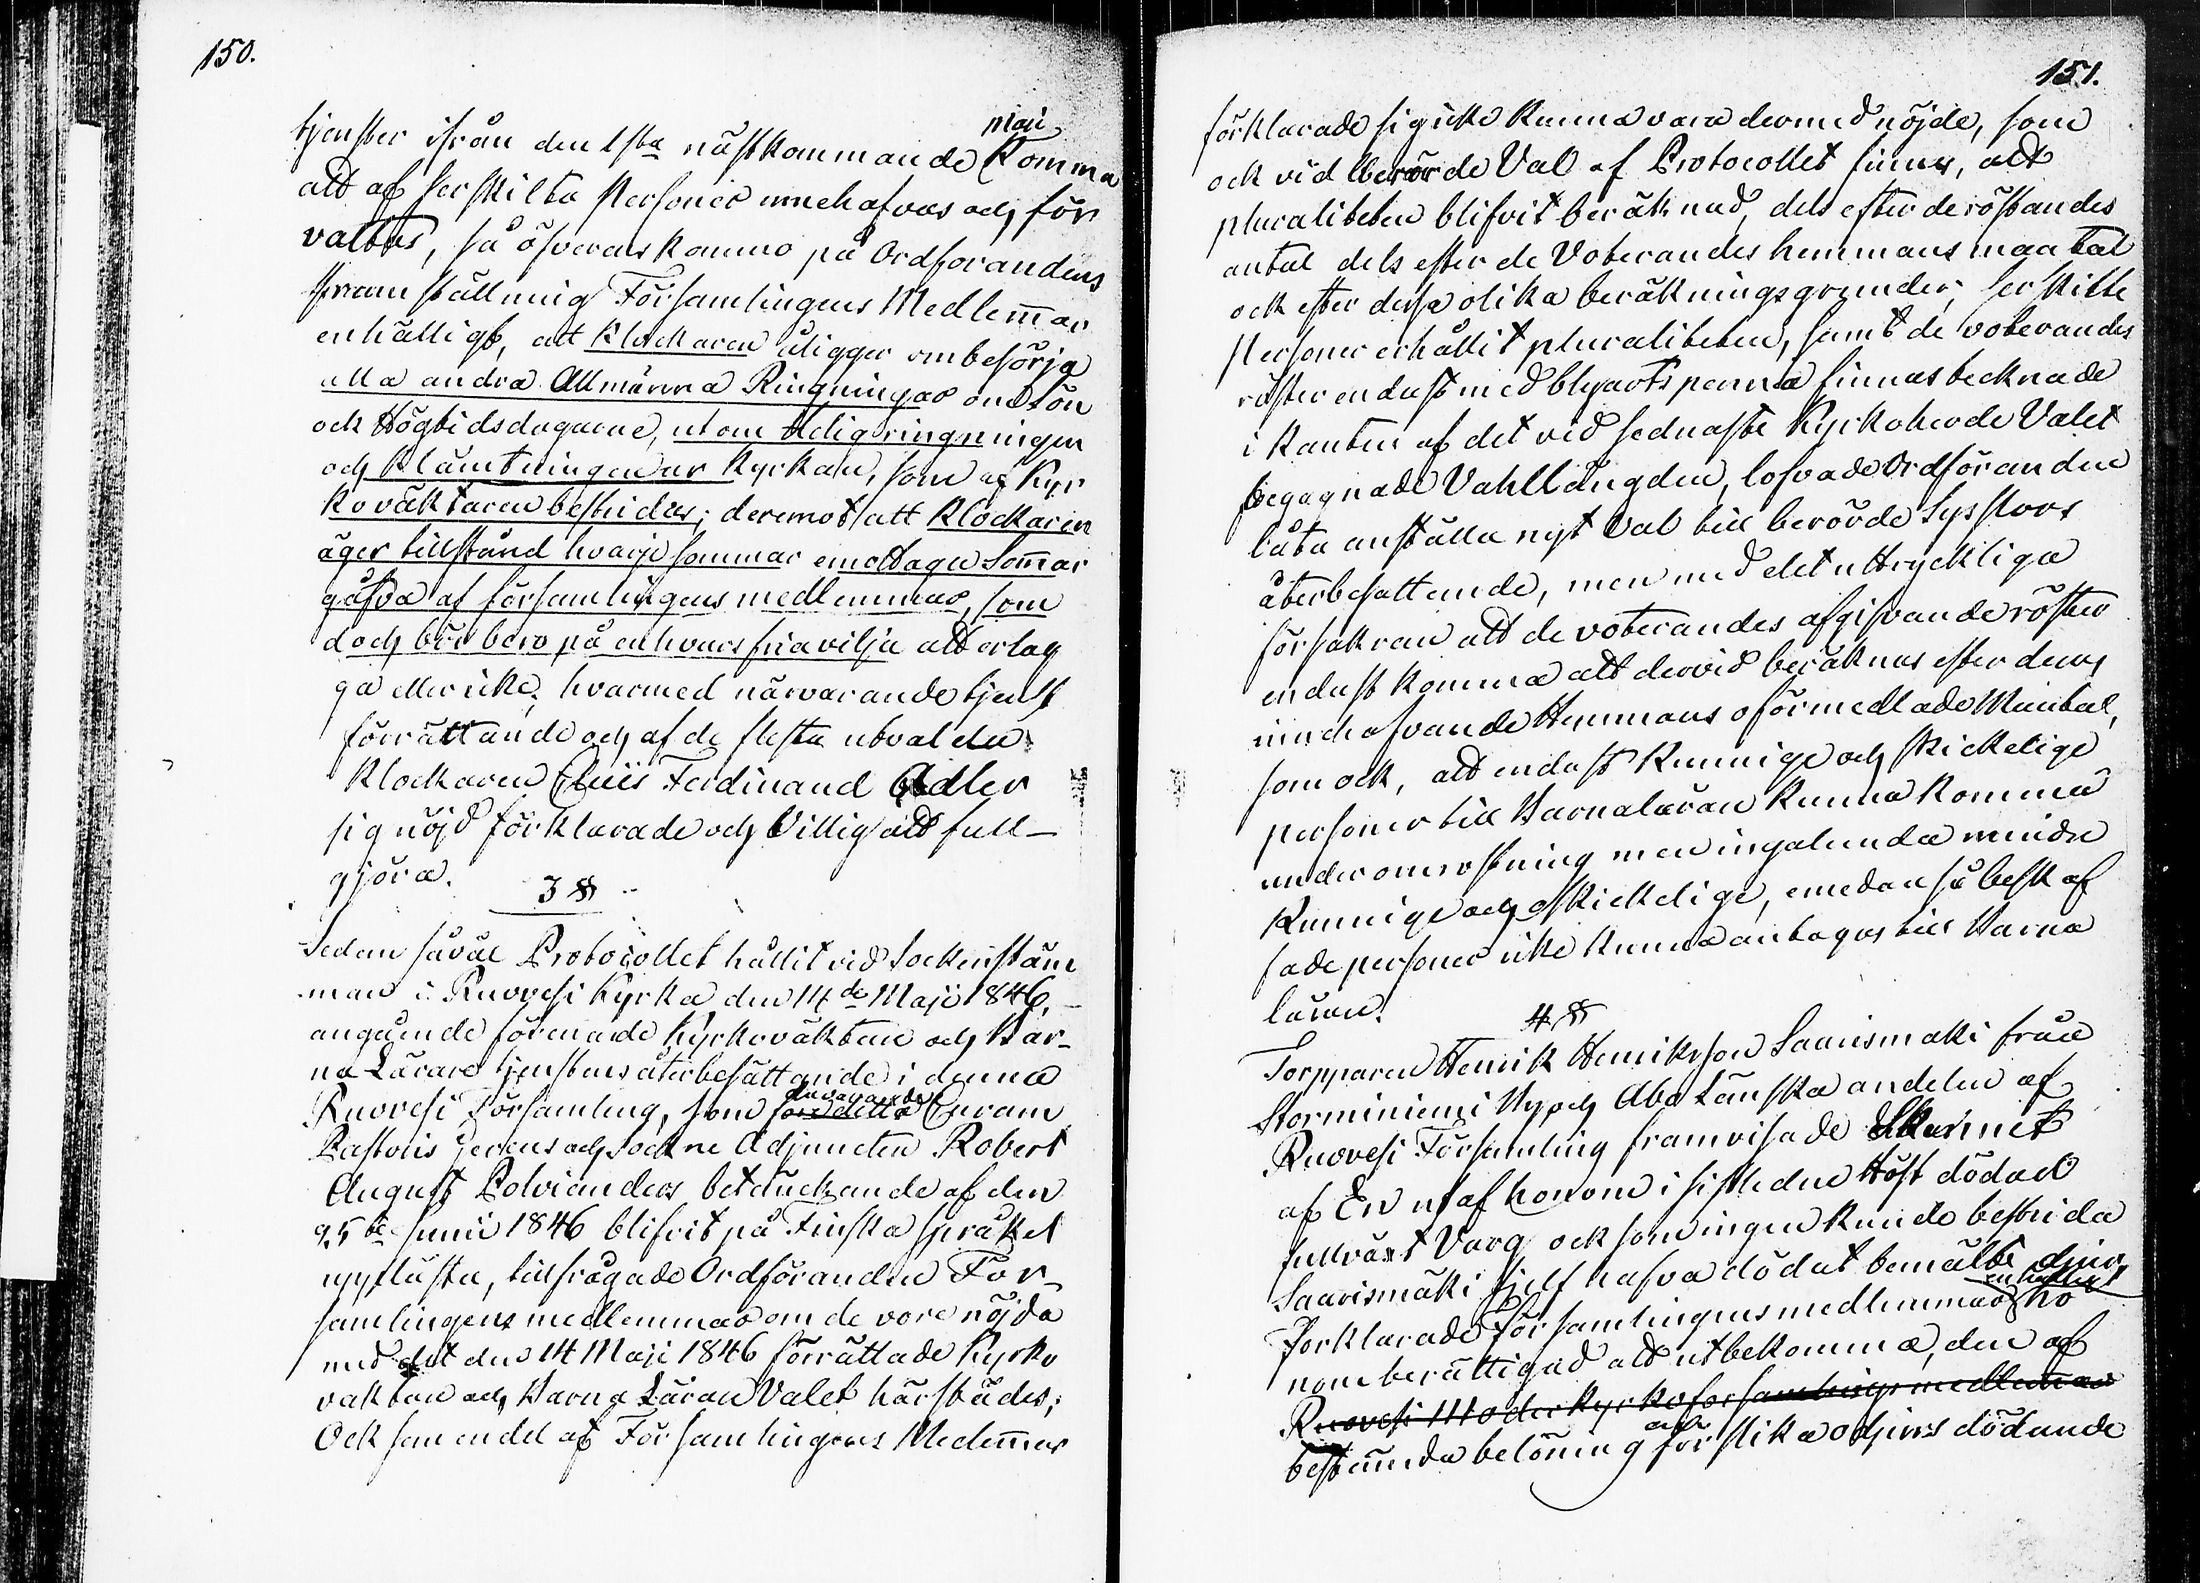 150.
tjenster ifrån den 1sta nästkommande Maji Komma
att af serskilta Personer innehafvas och för
valtas, så öfverenskommo på Ordforandens
framställning Församlingens Medlem̄ar
enhälligt, att Klockaren åligger ombesörja
alla andra Allmänna Ringningar om Sön
och Högtidsdagarne, utom Heligsringningen
och klämtningen ur Kyrkan, som af Kyr
koväktaren bestrides; deremot att Klockaren
äger tillstånd hvarje sommar emottaga Som̄ar
gåfva af församlingens medlemmar, som
doch bör bero på enhvars fria vilja att erläg
ga eller icke; hvarmed närvarande tjenst
förrättande och af de flesta utvalda
Klockaren Ferdinand Adler
sig nöjd förklarade och Villig att full-
gjöra.
3 §
Sedan såväl Protocollet hållit vid Sockenstäm
man i Ruovesi Kyrka den 14de Maji 1846,
angående förenade Kyrkoväktare och Bar-
na Lärare tjenstens återbesättande i denna
Ruovesi Församling, som Curam
Pastoris gerens och Sockne Adjuncten Robert
August Polvianders betänckande af den
25te Junii 1846 blifvit på Finska språket
uppläste, tillfrågade Ordföranden För-
samlingens medlemmar om de vore nöjda
med det den 14 Maji 1846 förrättade Kyrko
vaktare och Barna Lärare Valet härstädes;
Och som en del af Församlingens Medlem̄ar
151.
förklarade sig icke Kunna vara dermed nöjde, som
ock vid berörde Val af Protocollet finnes, att
pluraliteten blifvit beräknad, dels efter de röstandes
antal dels efter de Voterandes hemmans mantal
och efter dessa olika beräkningsgrunder, serskilte
Personer erhållit pluraliteten, samt de voterandes
röster endast med blyartspenna finnas tecknade
i Kanten af det vid sednaste Kyrkoherde Valet
begagnade Vahllängden, lofvade Ordföranden
låta anställa nytt Val till berörde Sysslors
återbesattande, men med det uttryckliga
försäkran att de voterandes afgifvande röster
endast komma att dervid beräknas efter deras
innehafvande Hemmans oförmedlade Mantal,
som ock, att endast Kunnige och skickelige
personer till Barnaläraren Kunna komma
under omröstning men ingalunda mindre
Kunnige och oskickelige, emedan så beskaf
fade personer icke Kunna antagas till Barna
lärare.
4 §
Torpparen Henrik Henriksson Saarismäki från
Storminiemi By och Abo Länska andelen af
Ruovesi Församling framvisade Skarinet
af En utaf honom i sistleden Höst dödad
fullväxt Varg och som ingen Kunde bestrida
Saarismäki sjelf hafva dödat bemälte djur,
Förklarade Församlingens medlemmar enhälligt ho
nom berättigad att utbekomma, den af
Ruovesi Moderkyrkoförsamlings medlem̄ar
bestämda belöning för slika odjurs dödande